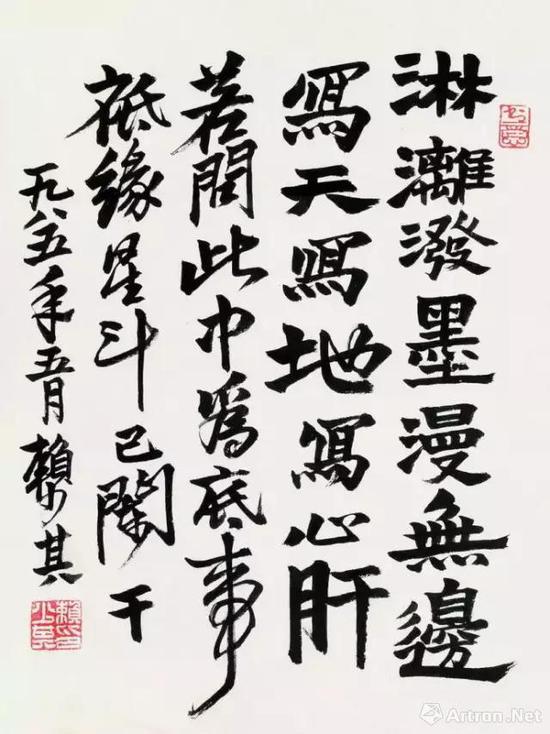 淋漓潑墨漫無邊
寫天寫地寫心肝
若問此中為底事
祗緣星斗已闌干
一九八五年五月賴少其
賴少其印
Artron.Net